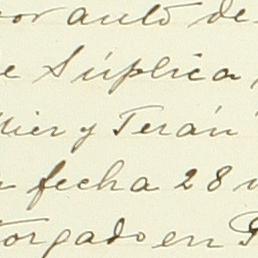 por auto de
e Súplica
Mier y Terán
fecha 28
torgado en P